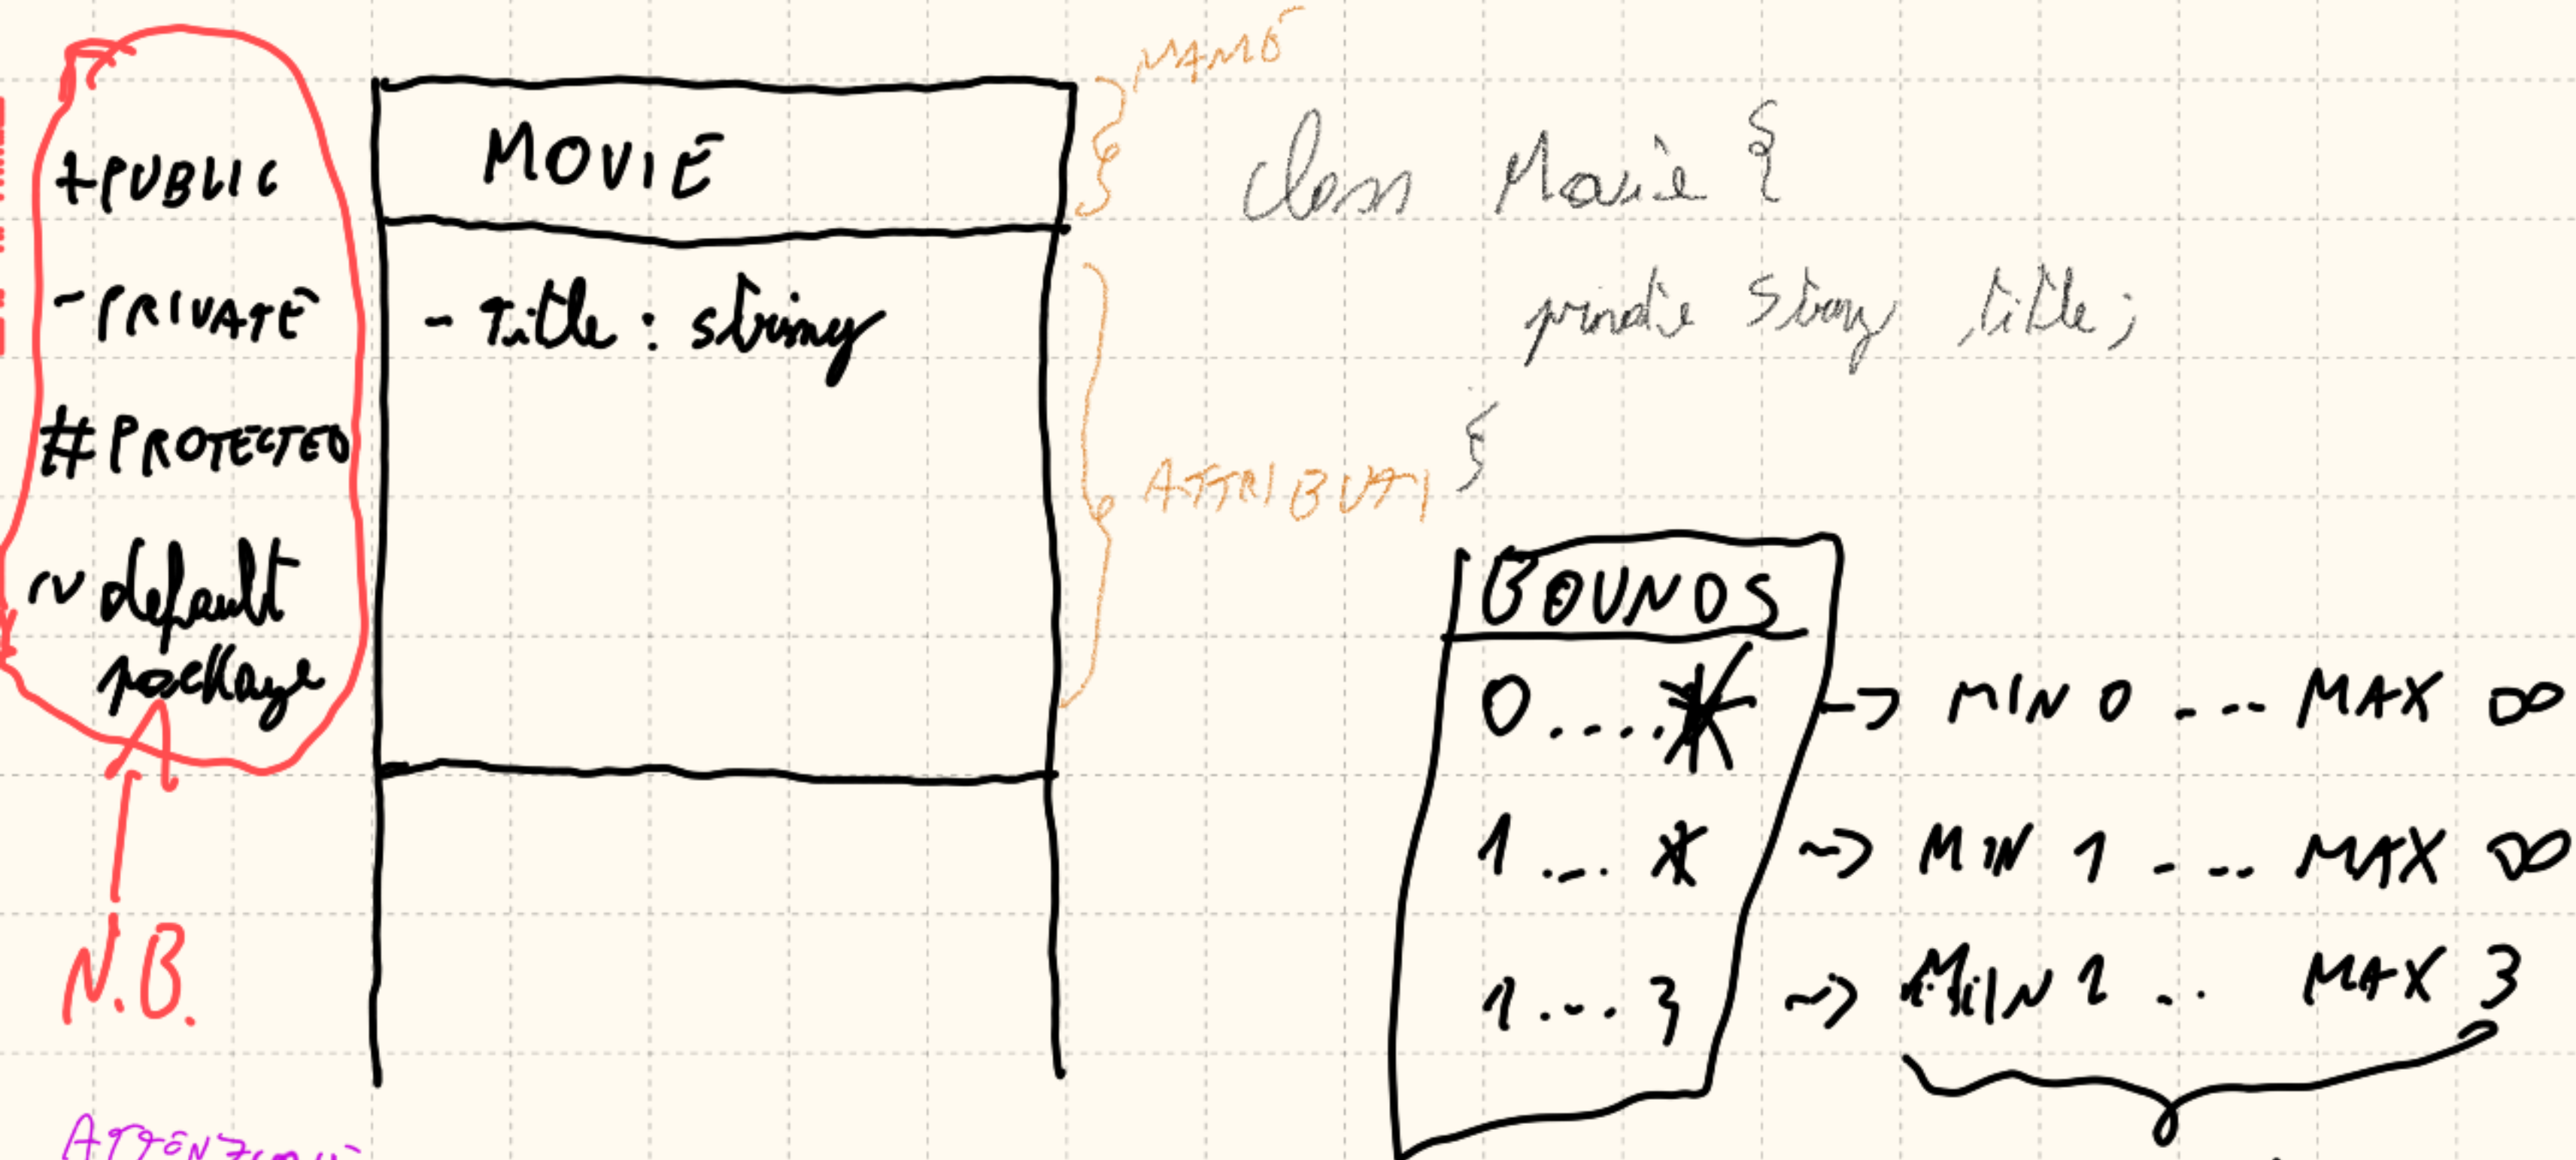 NAME
+PUBLIC
-PRIVATE
#PROTECTED
~default
package
N.B.
MOVIE
- Title : string
ATTRIBUTI
class Movie {
private String title;
}
BOUNDS
0....* -> MIN 0 ... MAX ∞
1...* ~> MIN 1 ... MAX ∞
1...3 ~> MIN 1 .. MAX 3